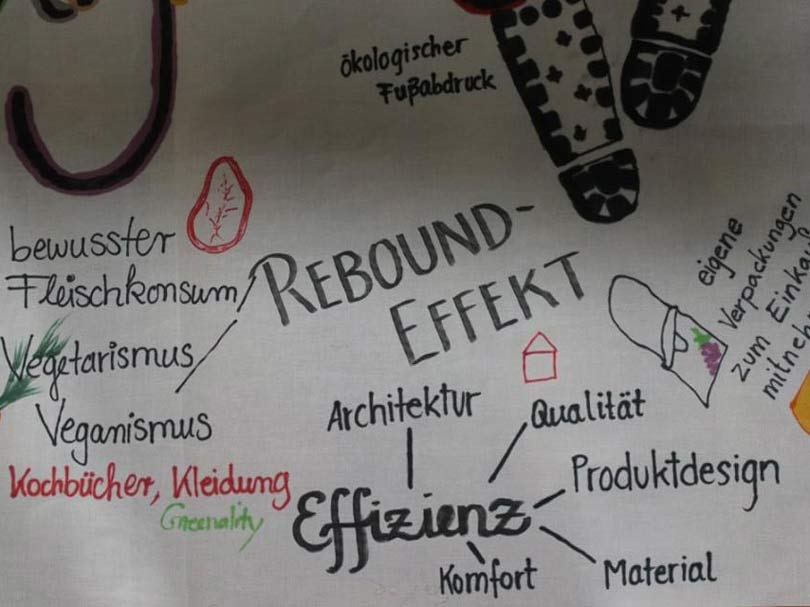 ökologischer
Fußabdruck
bewusster
Fleischkonsum/
Vegetarismus/
Veganismus
Kochbücher, Kleidung
Greenality
REBOUND-
EFFEKT
eigene
Verpackungen
zum Einkau
mitneh
Architektur
Qualität
Produktdesign
Effizienz
Komfort
Material